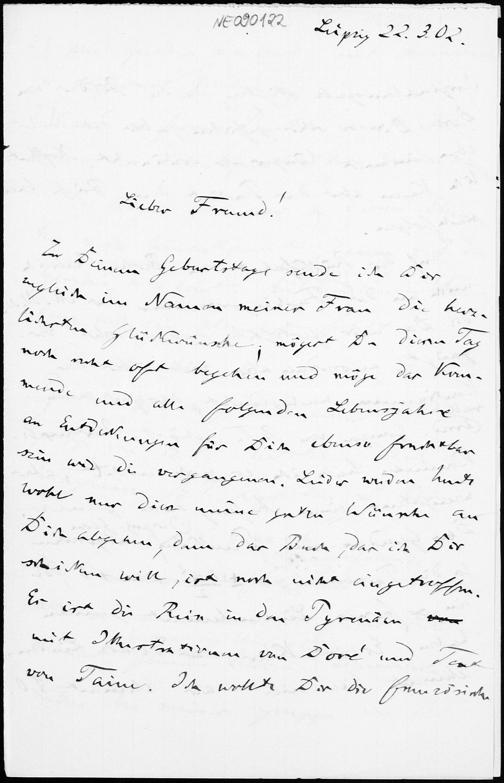 NE090122
Leipzig 22.3.02.
Lieber Freund!
Zu Deinem Geburtstage sende ich Dir
zugleich im Namen meiner Frau die herz-
lichsten Glückwünsche; mögest Du diesen Tag
noch recht oft begehen und möge das kom-
mende und alle folgenden Lebensjahre
an Entdeckungen für Dich ebenso fruchtbar
sein wie die vergangenen. Leider werden heute
wohl nur diese meine guten Wünsche an
Dich abgehen, denn das Buch, das ich Dir
schicken will, ist noch nicht eingetroffen.
Es ist die Reise in den Pyrenäen
mit Illustrationen von Doré und Text
von Taine. Ich wollte Dir die französische